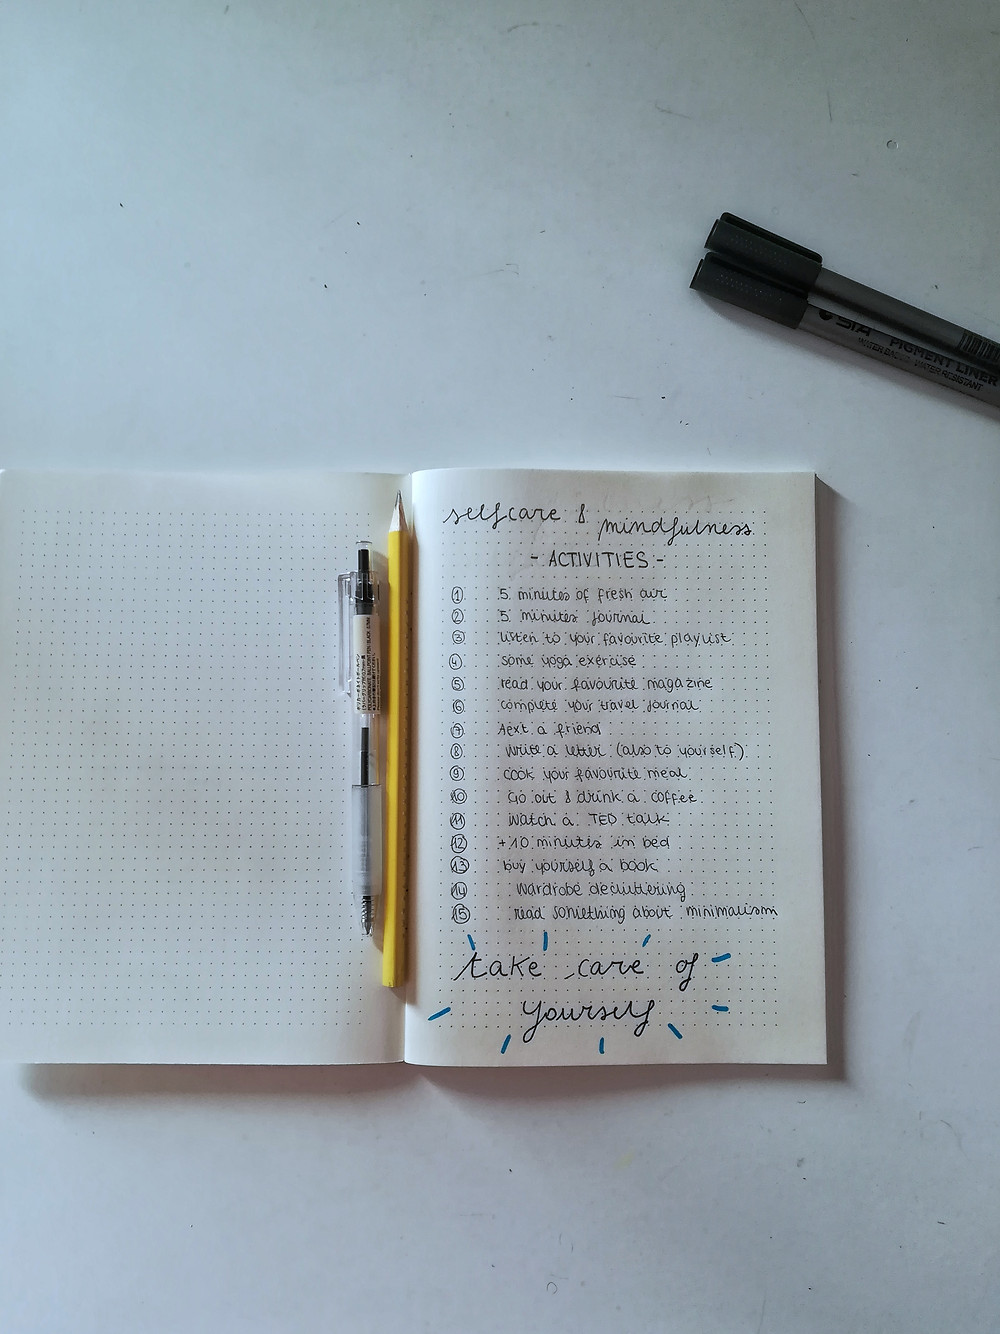 STA PIGMENT LINER
WATER BASED · WATER RESISTANT
selfcare & mindfulness
- ACTIVITIES -
1 5 minutes of fresh air
2 5 minutes journal
3 listen to your favourite playlist
4 some yoga exercise
5 read your favourite magazine
6 complete your travel journal
7 text a friend
8 write a letter (also to yourself)
9 cook your favourite meal
10 Go out & drink a coffee
11 Watch a TED talk
12 +10 minutes in bed
13 buy yourself a book
14 Wardrobe decluttering
15 read something about minimalism
take care of
yourself